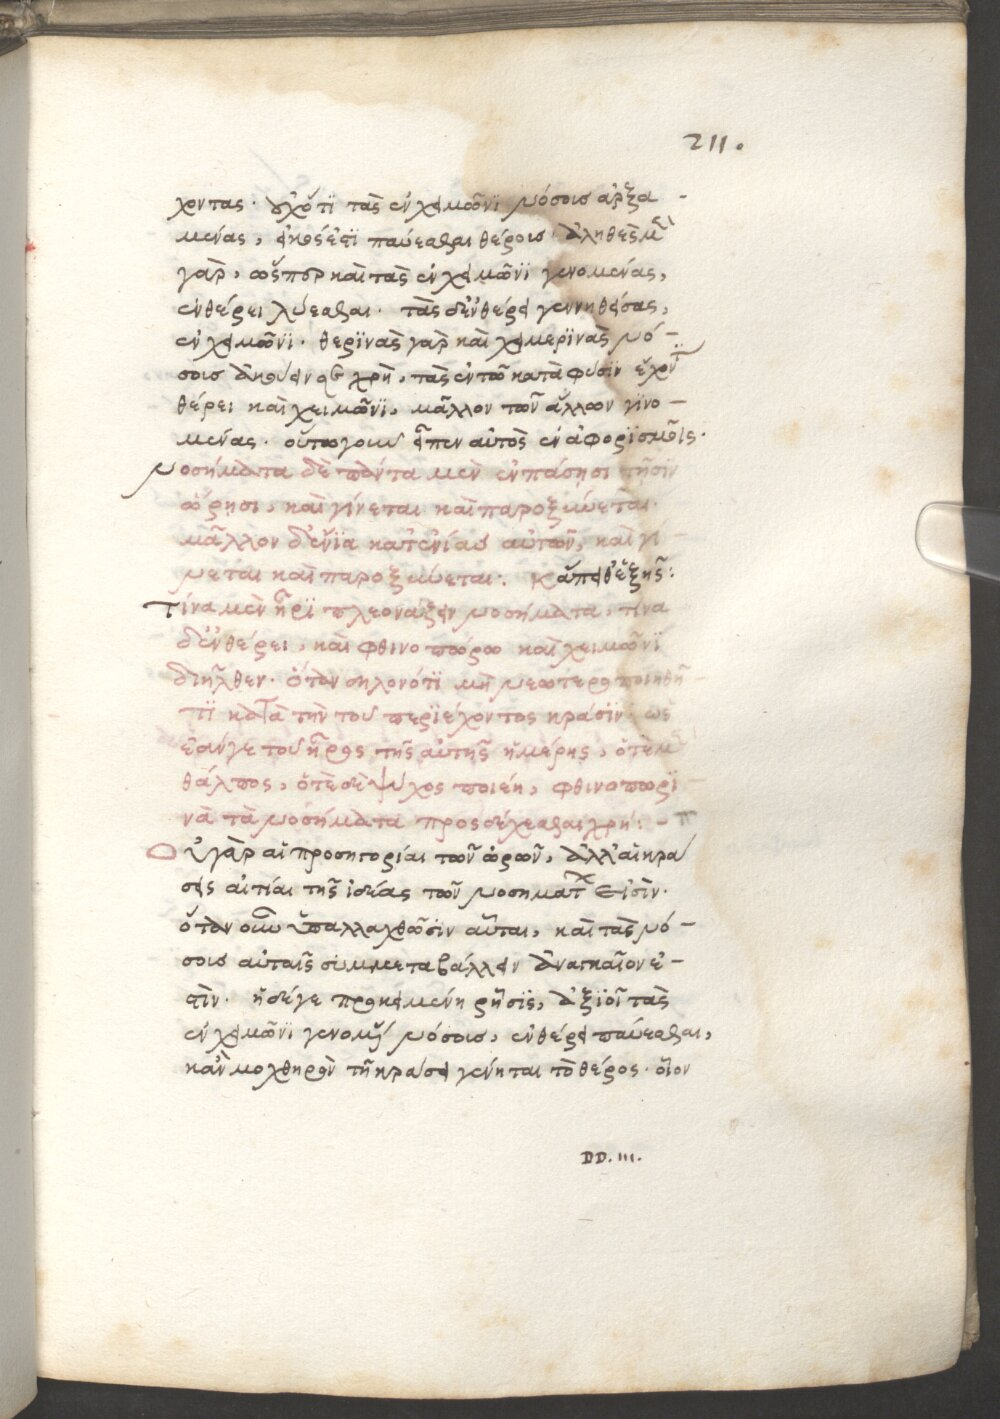 211.
χοντας· οὐχ ὅτι τὰς ἐν χειμῶνι νόσους ἀρξα-
μένας, εἰκός ἐστι παύεσθαι θέρους· ἀληθὲς μὲν
γὰρ, ὥσπερ καὶ τὰς ἐν χειμῶνι γενομένας,
ἐν θέρει λύεσθαι· τὰς δ' ἐν θέρει γεννηθείσας,
ἐν χειμῶνι· θερινὰς γὰρ καὶ χειμερινὰς νό-
σους ἀκούειν χρὴ, τὰς ἐν τῶ κατὰ φύσιν ἔχοντι
θέρει καὶ χειμῶνι, μᾶλλον τῶν ἄλλων γινο-
μένας· οὕτω γοῦν εἶπεν αὐτὸς ἐν ἀφορισμοῖς·
νοσήματα δὲ πάντα μὲν ἐν πάσησι τῆσιν
ὥρησι, καὶ γίνεται καὶ παροξύνεται·
μᾶλλον δ' ἔνια κατ' ἐνίας αὐτῶν, καὶ γί-
νεται καὶ παροξύνεται· κἄπειθ' ἑξῆς:
τίνα μὲν ἦρι πλεονάζειν νοσήματα, τίνα
δ' ἐν θέρει, καὶ φθινοπώρω καὶ χειμῶνι
διῆλθεν· ὅταν δηλονότι μὴ νεωτεροποιηθῆ
τι κατὰ τὴν τοῦ περιέχοντος κρᾶσιν· ὡς
ἐάν γε τοῦ ἦρος τῆς αὐτῆς ἡμέρης, ὁτὲ μὲν
θάλπος, ὁτὲ δὲ ψύχος ποιέη, φθινοπωρι-
νὰ τὰ νοσήματα προσδέχεσθαι χρή:-
Οὐ γὰρ αἱ προσηγορίαι τῶν ὡρῶν, ἀλλ' αἱ κρά
σεις αἰτίαι τῆς ἰδέας τῶν νοσημάτων εἰσίν·
ὅταν οὖν ὑπαλλαχθῶσιν αὗται, καὶ τὰς νό-
σους αὐταῖς συμμεταβάλλειν ἀναγκαῖον ἐ-
στὶν· ἡ δέ γε προκειμένη ρῆσις, ἀξιοῖ τὰς
ἐν χειμῶνι γενομένας νόσους, ἐν θέρει παύεσθαι,
κἂν μοχθηρὸν τῆ κράσει γένηται τὸ θέρος· οἷον
DD. III.